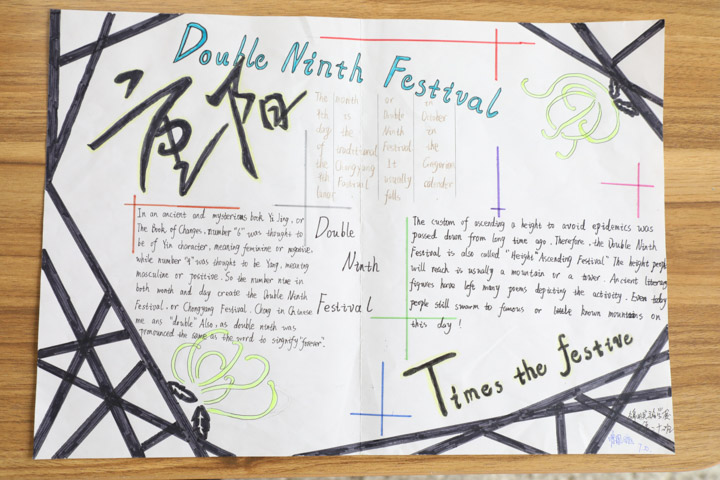 Double Ninth Festival
重阳
The month or in
9th is Double October
day the Ninth in
of traditional Festival the
the Chongyang It Gregorian
9th Festival usually calender
lunar falls
In an ancient and mysterious book Yi Jing, or
The Book of Changes, number "6" was thought to
be of Yin character, meaning feminine or negative,
while number "9" was thought to be Yang, meaning
masculine or positive. So the number nine in
both month and day create the Double Ninth
Festival, or Chongyang Festival. Chong in Chinese
me ans "double". Also, as double ninth was
pronounced the same as the word to signify "forever".
Double
Ninth
Festival
The custom of ascending a height to avoid epidemics was
passed down from long time ago. Therefore, the Double Ninth
Festival is also called "Height Ascending Festival". The height people
will reach is usually a mountain or a tower. Ancient literary
figures have left many poems depicting the activity. Even today
people still swarm to famous or little known mountains on
this day!
Times the festive